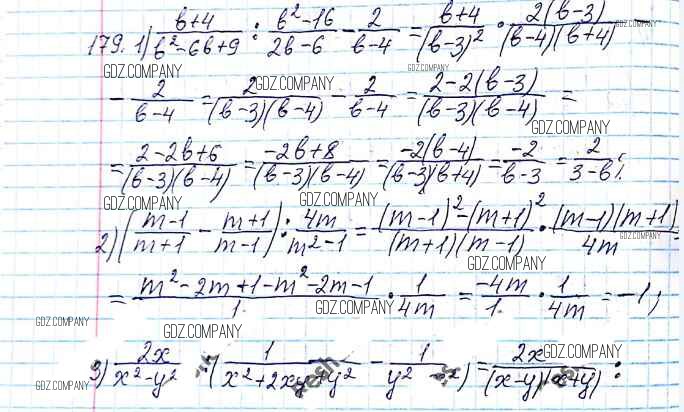 179. 1) (b+4)/(b²-6b+9) : (b²-16)/(2b-6) - 2/(b-4) = (b+4)/(b-3)² · 2(b-3)/((b-4)(b+4)) -
GDZ.COMPANY GDZ.COMPANY GDZ.COMPANY GDZ.COMPANY
- 2/(b-4) = 2/((b-3)(b-4)) - 2/(b-4) = (2-2(b-3))/((b-3)(b-4)) =
GDZ.COMPANY
= (2-2b+6)/((b-3)(b-4)) = (-2b+8)/((b-3)(b-4)) = -2(b-4)/((b-3)(b+4)) = -2/(b-3) = 2/(3-b);
GDZ.COMPANY GDZ.COMPANY
2) ((m-1)/(m+1) - (m+1)/(m-1)) : 4m/(m²-1) = ((m-1)²-(m+1)²)/((m+1)(m-1)) · (m-1)(m+1)/4m =
GDZ.COMPANY GDZ.COMPANY
= (m²-2m+1-m²-2m-1)/1 · 1/4m = -4m/1 · 1/4m = -1;
GDZ.COMPANY GDZ.COMPANY GDZ.COMPANY
3) 2x/(x²-y²) : (1/(x²+2xy+y²) - 1/(y²-x²)) = 2x/((x-y)(x+y)) :
GDZ.COMPANY GDZ.COMPANY